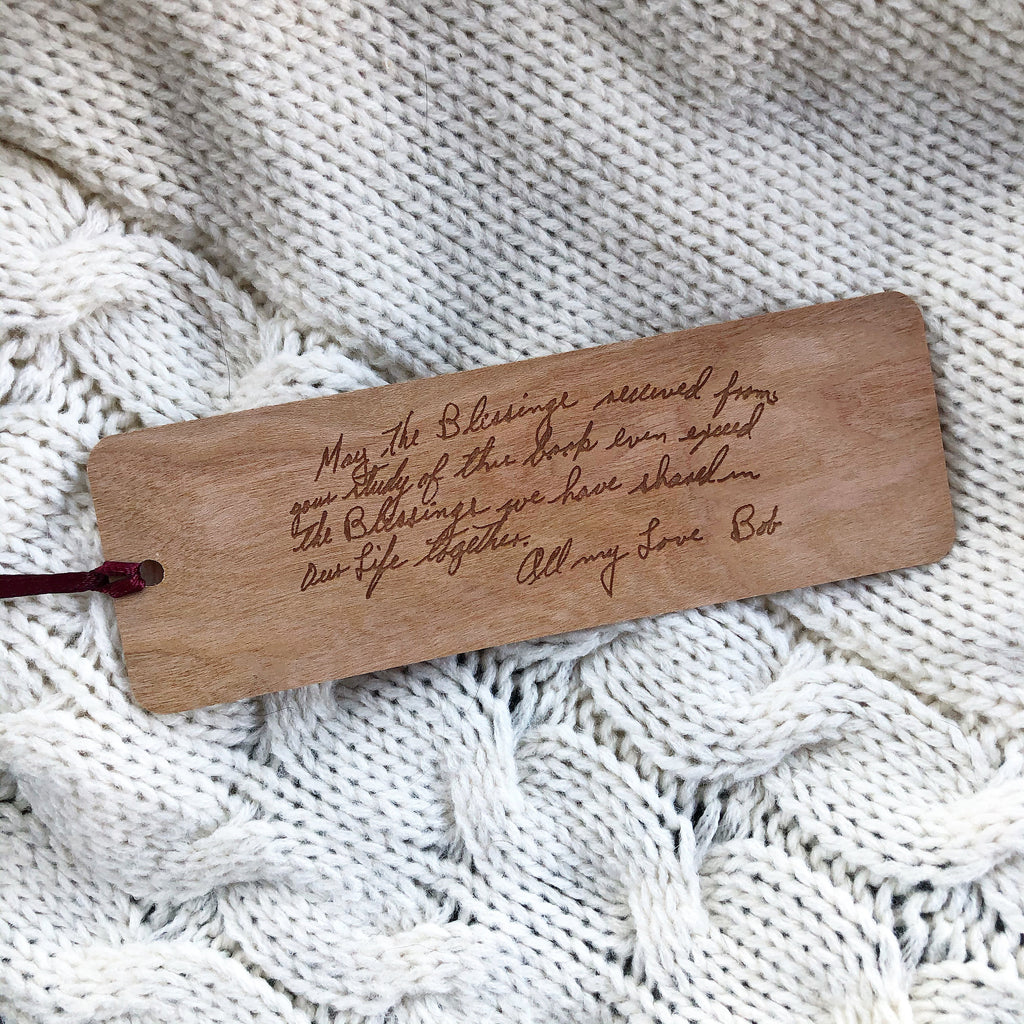 May the Blessings received from
your study of this book even exceed
the Blessings we have shared in
Our Life together.
All my Love Bob